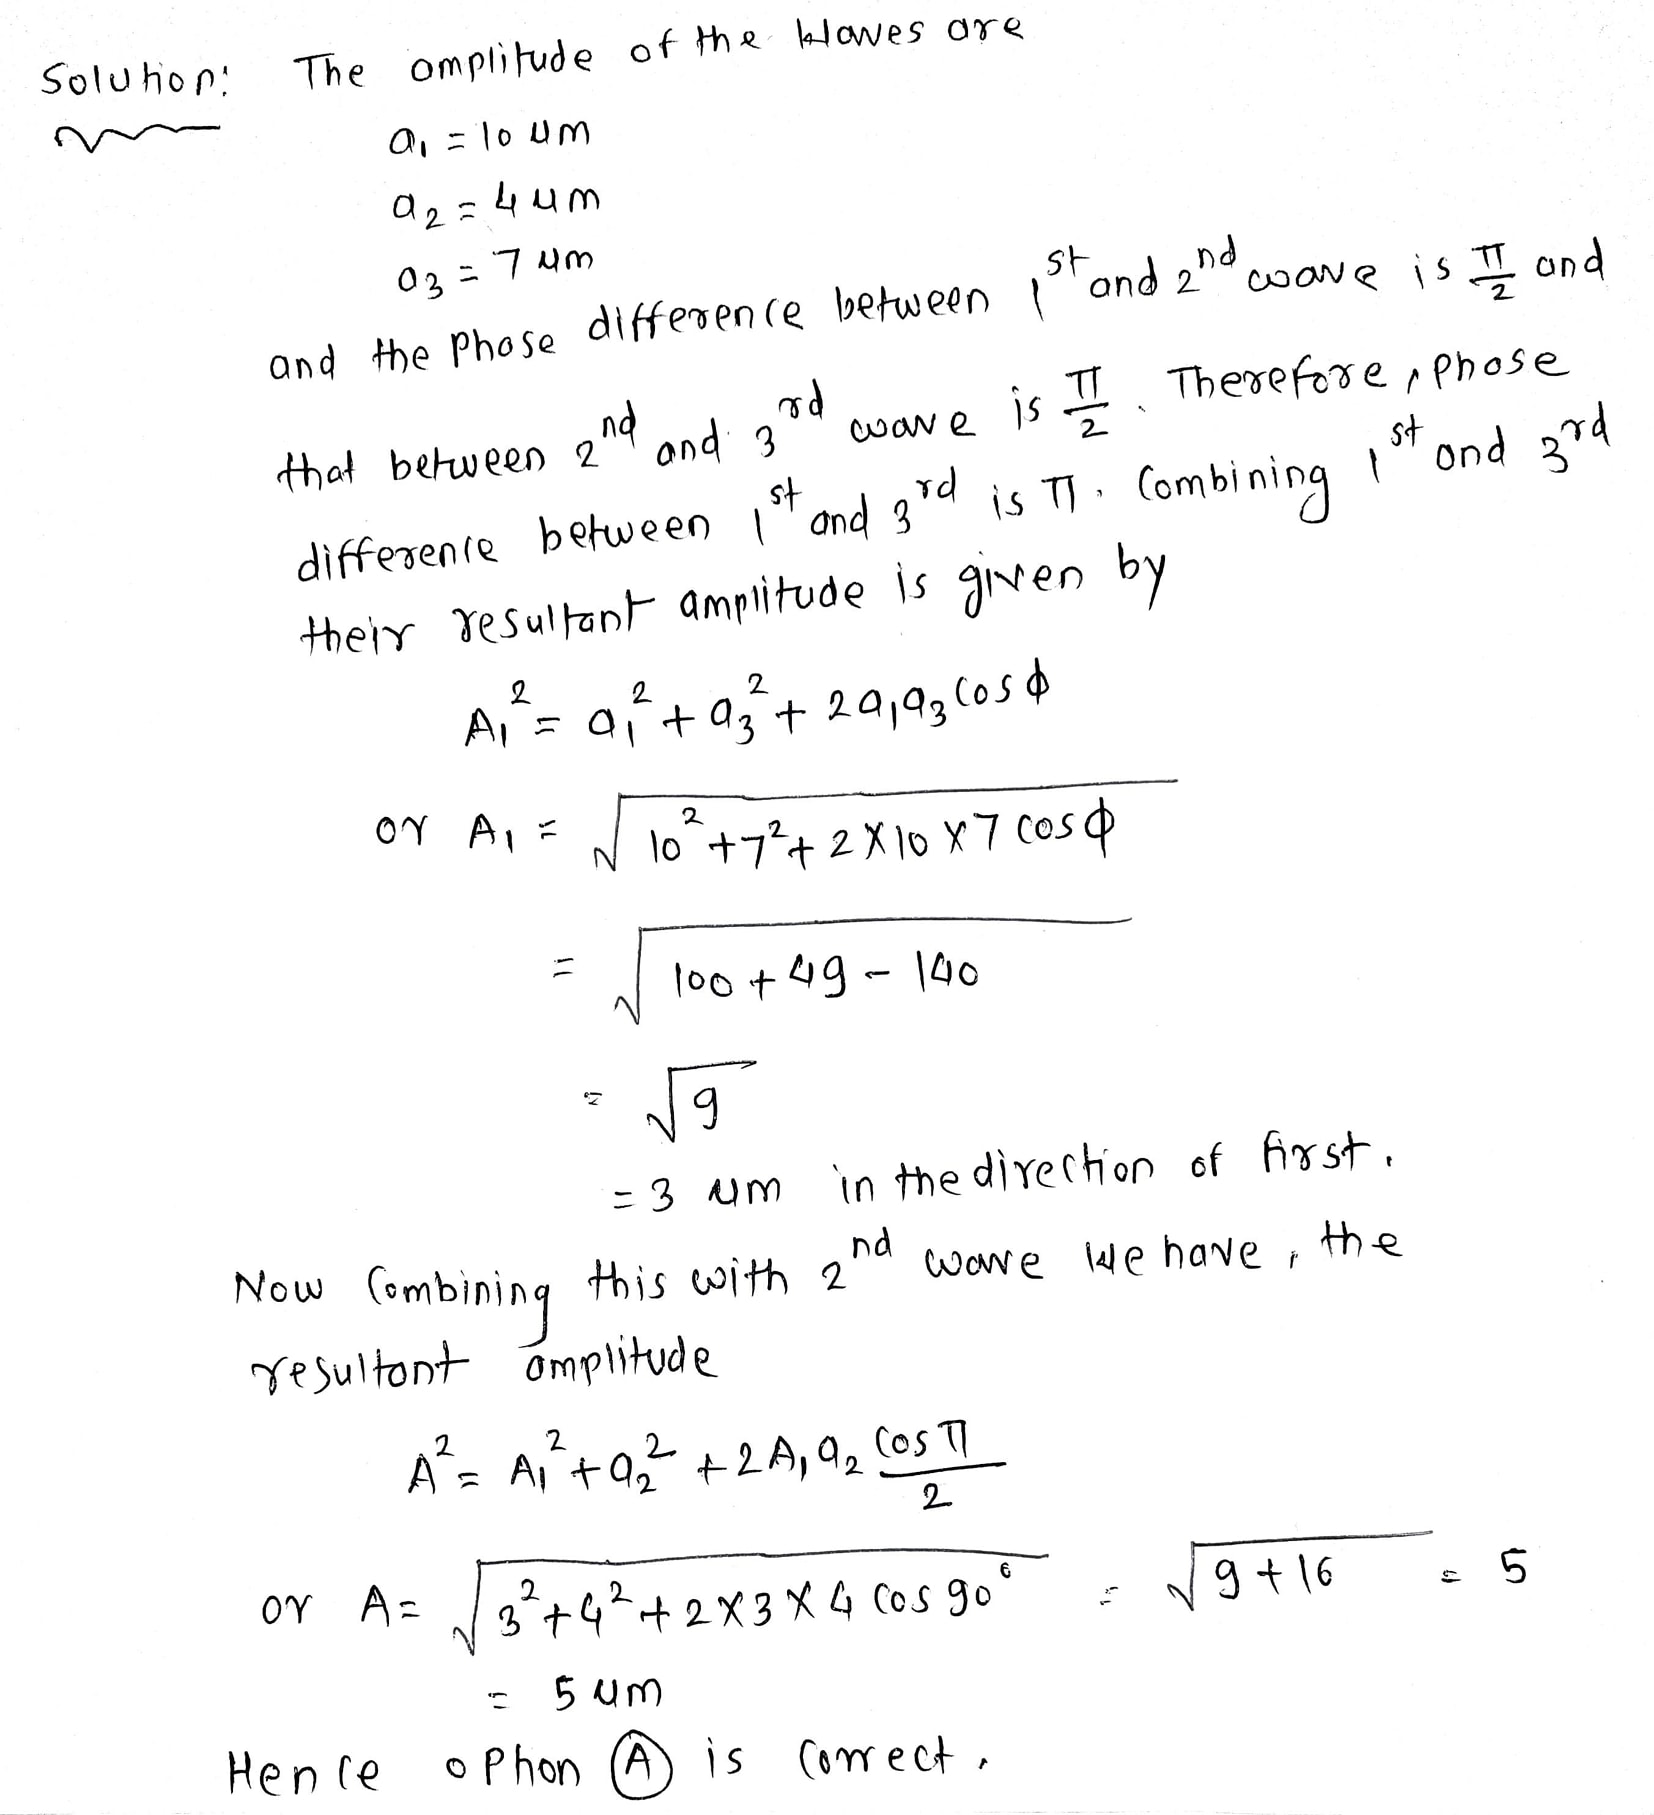 Solution: The amplitude of the Waves are
a₁ = 10 μm
a₂ = 4 μm
a₃ = 7 μm
and the Phase difference between 1st and 2nd wave is π/2 and
that between 2nd and 3rd wave is π/2. Therefore, phase
difference between 1st and 3rd is π. Combining 1st and 3rd
their resultant amplitude is given by
A₁² = a₁² + a₃² + 2a₁a₃ cos ϕ
or A₁ = √(10² + 7² + 2×10×7 cos ϕ)
= √(100 + 49 - 140)
= √9
= 3 μm in the direction of first.
Now Combining this with 2nd wave We have, the
resultant amplitude
A² = A₁² + a₂² + 2A₁a₂ cos π/2
or A = √(3² + 4² + 2×3×4 cos 90°) = √(9+16) = 5
= 5 μm
Hence option (A) is Correct.